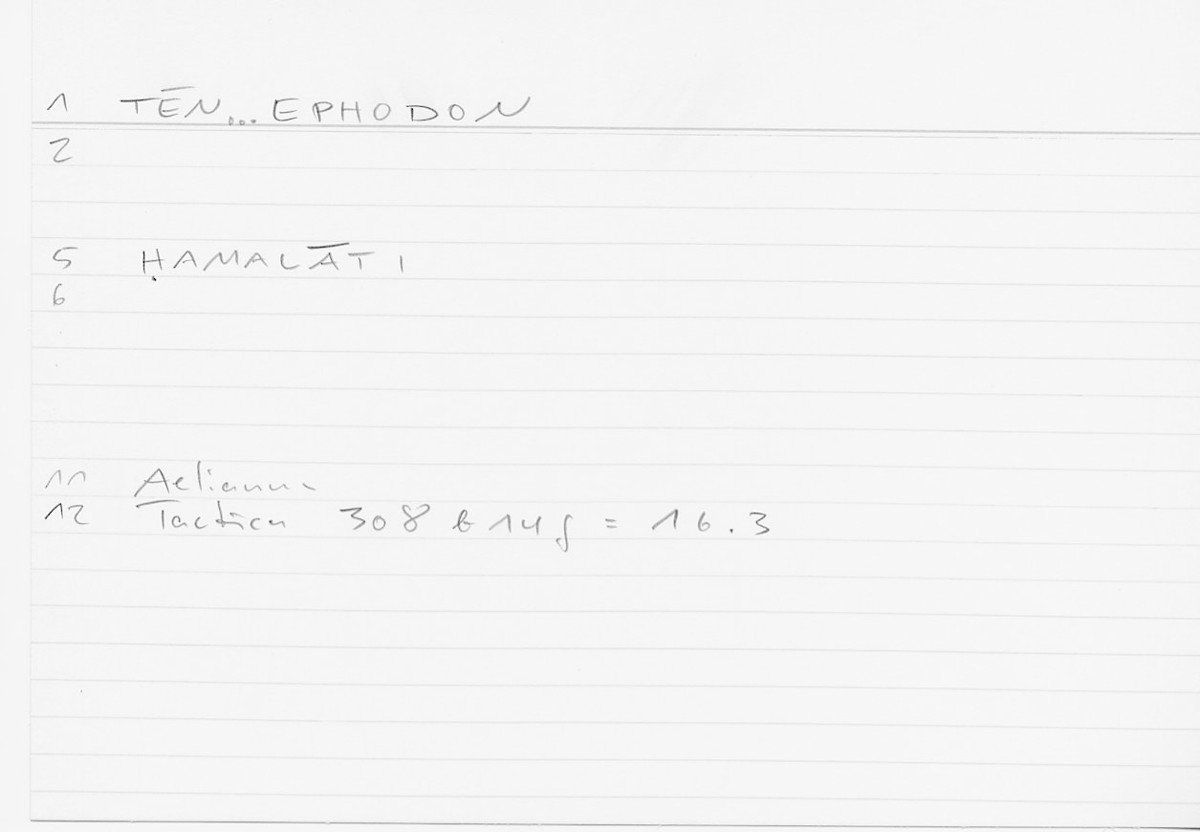 1 TĒN... EPHODON
2
5 ḤAMALĀTI
6
11 Aelianus
12 Tactica 308 b 14f = 16.3